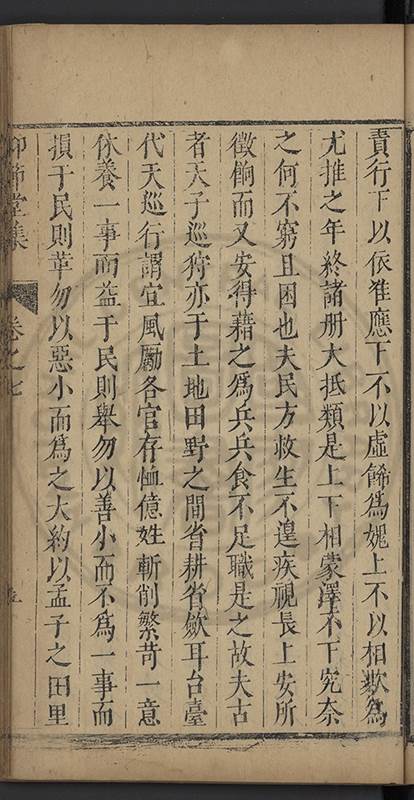 責行下以依准應下不以虛餙為媿上不以相欺為
尤推之年終諸册大抵類是上下相蒙澤不下究奈
之何不窮且困也夫民方救生不遑疾視長上安所
徵餉而又安得藉之為兵兵食不足職是之故夫古
者天子巡狩亦于土地田野之間省耕省斂耳台臺
代天巡行謂宜風勵各官存恤億姓斬削繁苛一意
休養一事而益于民則舉勿以善小而不為一事而
損于民則革勿以惡小而為之大約以孟子之田里
仰節堂集
卷之七